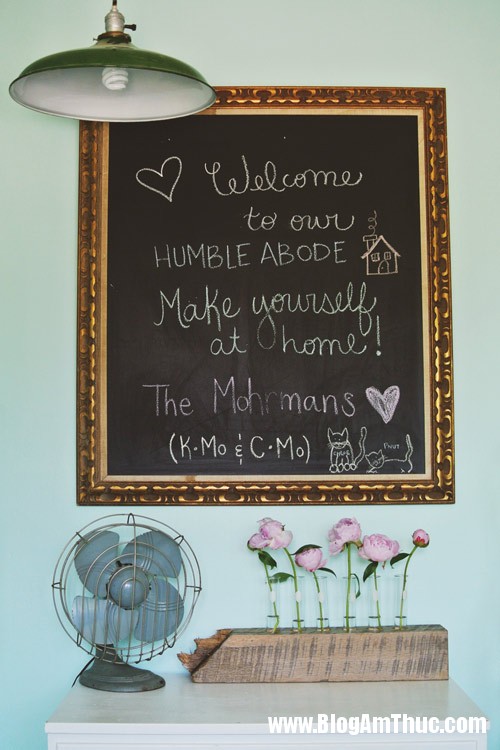 Welcome
to our
HUMBLE ABODE
Make yourself
at home!
The Mohrmans
(K·Mo & C·Mo)
www.BlogAmThuc.com